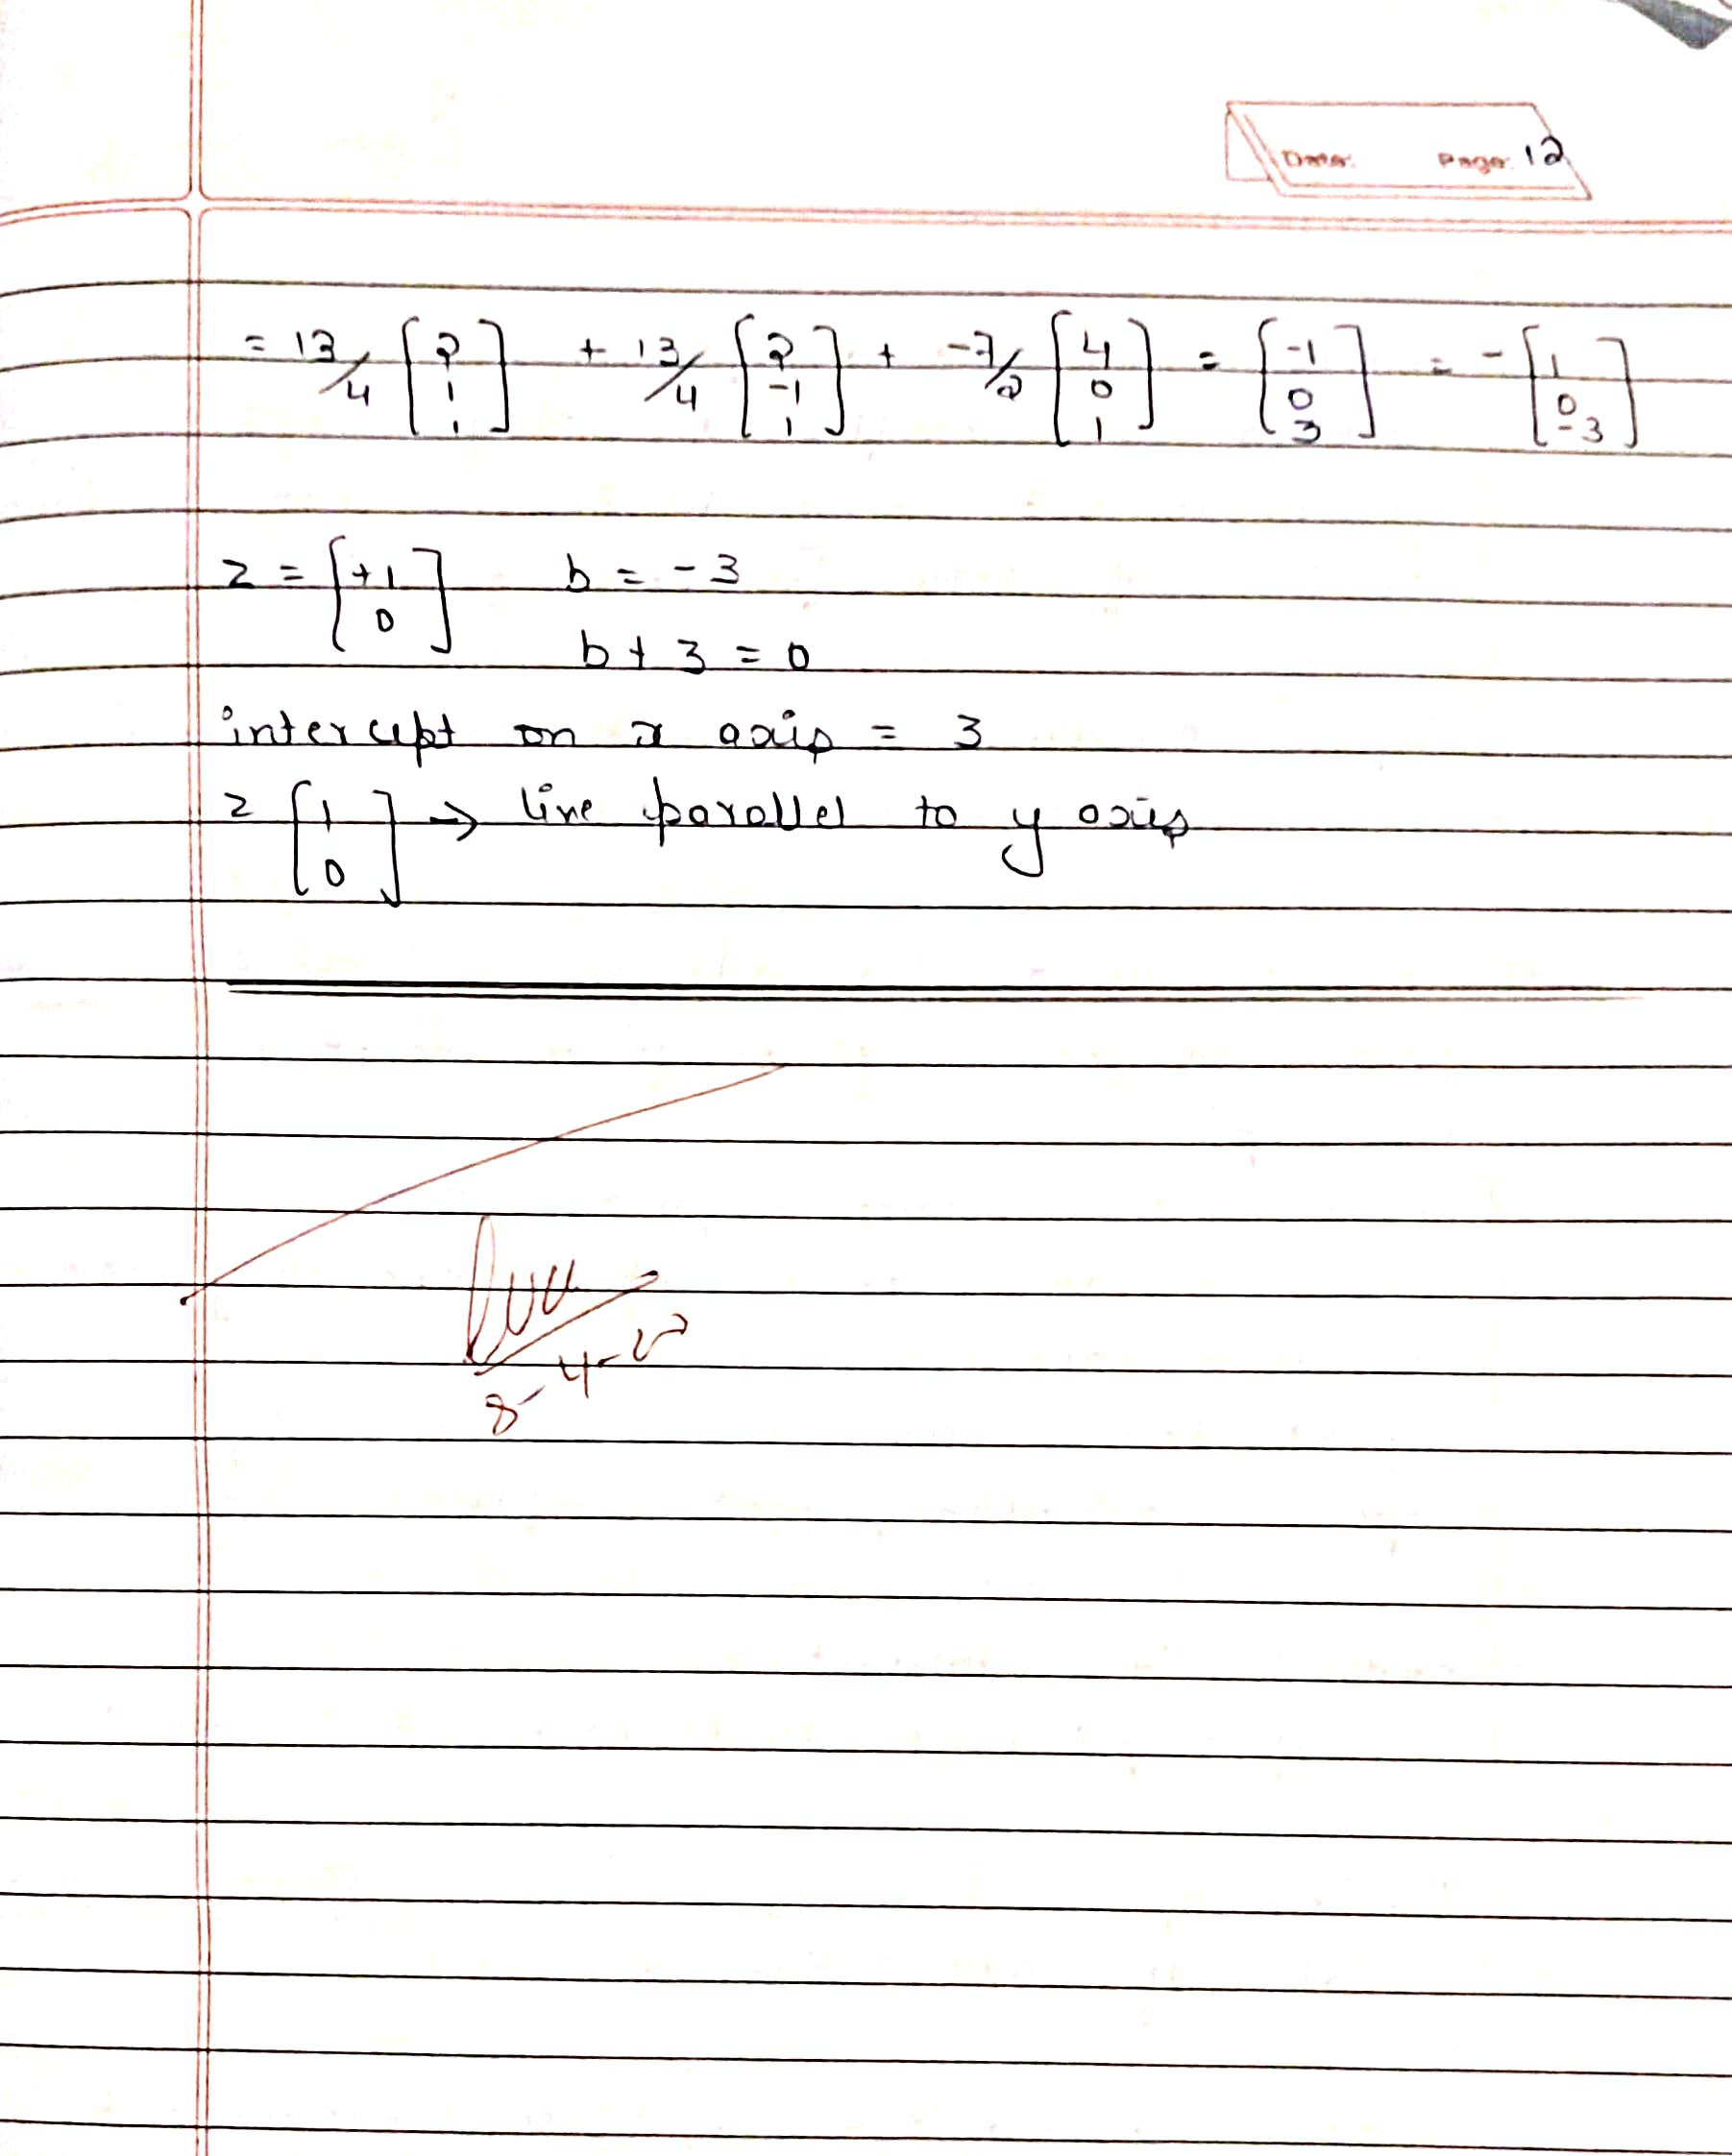 Date: Page: 12
= 13/4 [2 1 1] + 13/4 [2 -1 1] + -7/2 [4 0 1] = [-1 0 3] = -[1 0 -3]
z = [+1 0] b = -3
b + 3 = 0
intercept on x axis = 3
z [1 0] → line parallel to y axis